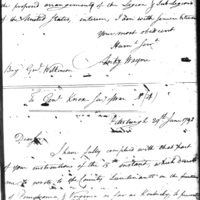 the proposed arrangements of the Legion & Sub Legions
of the United States, interim, I am with sincere esteem
Your most obedient
Hum. Servt.
Anty Wayne
Brig. Genl. Wilkinson
To Genl. Knox Secy. War
Pittsburgh 29th June 1792
Dear
I have fully complied with that part
of your instructions of the 15th instant, which directs
me to write to the County Lieutenants on the frontiers
of Pennsylvania & Virginia as far as Kentucky to prevent